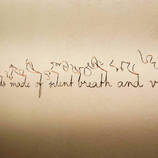 made of silent breath and